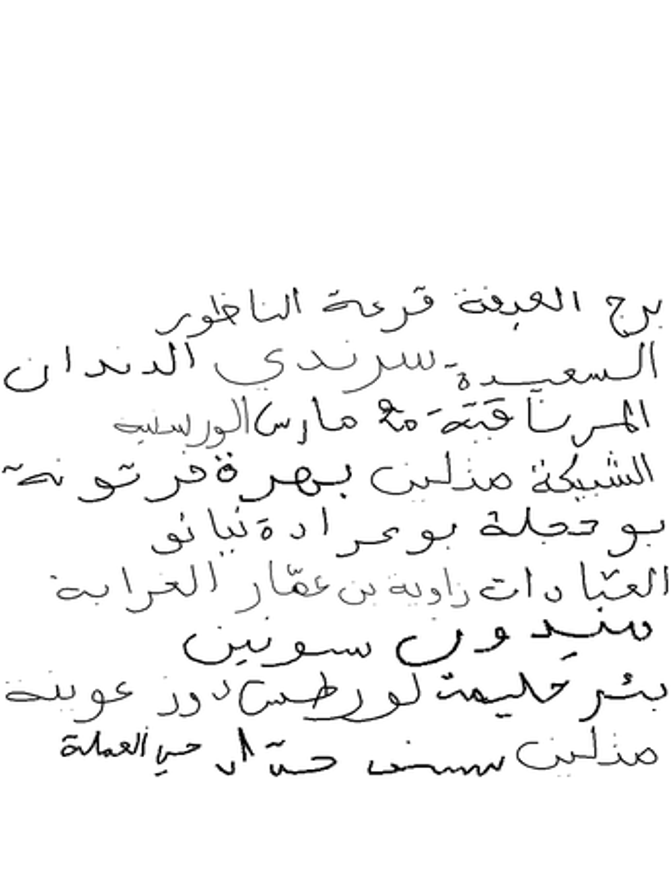 برج العيفة قرعة الناظور
السعيدة سرندي الدندان
المرناقية 20 مارس الورسنية
الشبيكة منزلين بهرة فرتونة
بوحجلة بوعرادة نيانو
العبادات زاوية بن عمّار الغرابة
سونين
بئر حليمة لورطس دوز عوينة
منزلين حي العملة